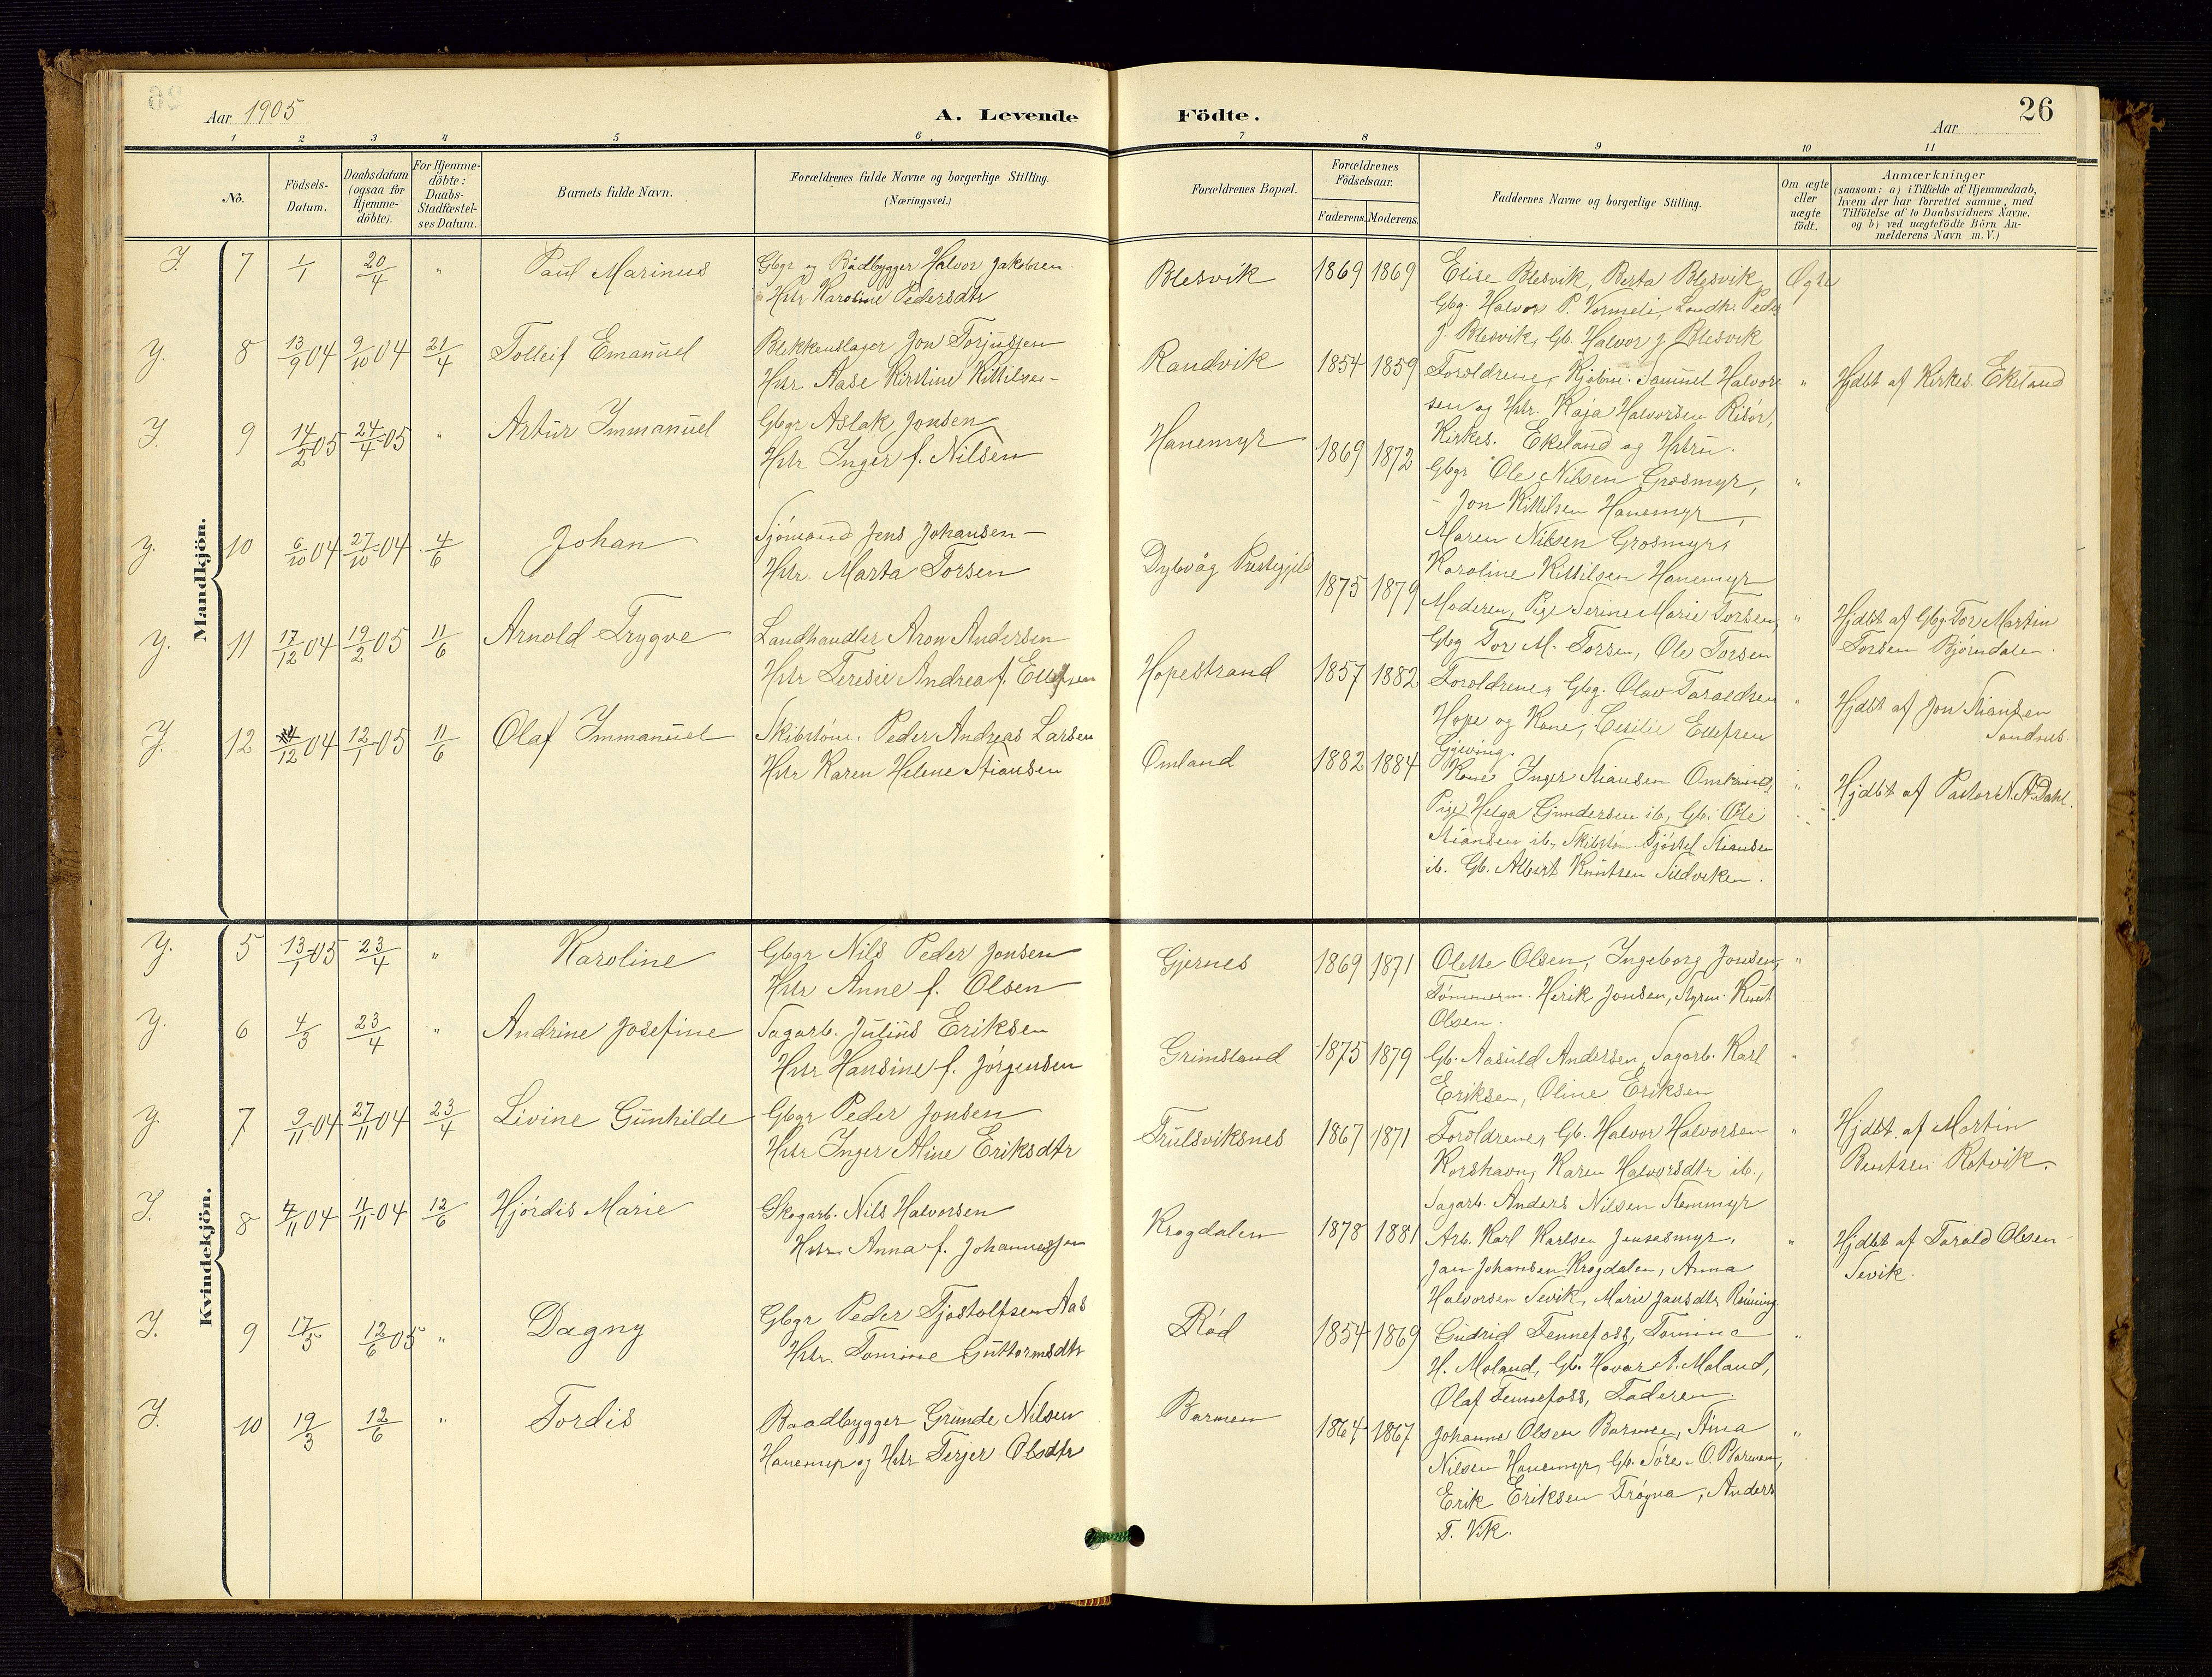 26
Aar 1905
A. Levende Födte.
Aar
1 2 3 4 5 6 7 8 9 10 11
No.
Födsels-Datum.
Daabsdatum (ogsaa for Hjemme-döbte).
For Hjemme-döbte: Daabs-Stadfæstel-ses Datum.
Barnets fulde Navn.
Forældrenes fulde Navne og borgerlige Stilling. (Næringsvei.)
Forældrenes Bopæl.
Forældrenes Födselsaar.
Faderens. Moderens.
Faddernes Navne og borgerlige Stilling.
Om ægte eller uægte födt.
Anmærkninger
(saasom: a) i Tilfælde af Hjemmedaab, hvem der har forrettet samme, med Tilföielse af to Daabsvidners Navne, og b) ved uægtefödte Börn An-melderens Navn m. V.)
Mandkjön.
J. 7 1/1 20/4 " Paul Marinus
Gbgr og Bådbygger Halvor Jakobsen
Hstr Karoline Pedersdtr
Blesvik 1869 1869
Elise Blesvik, Berta Blesvik,
Gbg. Halvor P. Vormeli, Landh. Peder
J. Blesvik, Gb. Halvor J. Blesvik
Ægte
J. 8 13/9 04 9/10 04 21/4 Tolleif Emanuel
Blekkenslager Jon Torjussen
Hstr. Aase Kirstine Kittilsen
Randvik 1854 1859
Foroldrene, Kjöbm. Samuel Halvor-
sen og Hstr. Kaja Halvorsen Risör,
Kirkes. Ekeland og Hstru.
" Hjdbt af Kirkes. Ekeland
J. 9 14/2 05 24/4 05 " Artur Immanuel
Gbgr Aslak Jonsen
Hstr Inger f. Nilsen
Hanemyr 1869 1872
Gbgr Ole Nilsen Grosmyr,
- Jon Kittilsen Hanemyr,
Maren Nilsen Grosmyr,
Karoline Kittilsen Hanemyr
"
J. 10 6/10 04 27/10 04 4/6 Johan
Sjömand Jens Johansen
Hstr. Marta Torsen
Dybvåg Prestegjeld 1875 1879
Moderen, Pige Serine Marie Torsen,
Gbg Tor M. Torsen, Ole Torsen
" Hjdbt af Gbg. Tor Martin
Torsen Björndalen.
J. 11 17/12 04 19/2 05 11/6 Arnold Trygve
Landhandler Aron Andersen
Hstr Teresie Andrea f. Ellefsen
Hopestrand 1857 1882
Foroldrene, Gbg. Olav Taraldsen
Hope og Kone, Cecilie Ellefsen
Gjeving.
" Hjdbt af Jon Stiansen
Sandnes.
J. 12 12 04 12/1 05 11/6 Olaf Immanuel
Skibstöm. Peder Andreas Larsen
Hstr Karen Helene Stiansen
Omland 1882 1884
Kone Inger Stiansen Omland,
Pige Helga Gundersen ib, Gb. Ole
Stiansen ib., Skibstöm. Tjöstel Stiansen
ib. Gb. Albert Knutsen Sildviken.
" Hjdbt af Pastor N. A. Dahl.
Kvindekjön.
J. 5 13/1 05 23/4 " Karoline
Gbgr Nils Peder Jonsen
Hstr Anne f. Olsen
Gjernes 1869 1871
Olette Olsen, Ingeborg Jonsen,
Tömmerm. Herik Jonsen, Styrm. Knut
Olsen.
"
J. 6 4/3 23/4 " Andrine Josefine
Sagarb. Julius Eriksen
Hstr Hansine f. Jörgensen
Grimsland 1875 1879
Gb. Aasuld Andersen, Sagarb. Karl
Eriksen, Oline Eriksen
"
J. 7 9/11 04 27/11 04 23/4 Livine Gunhilde
Gbgr Peder Jonsen
Hstr Inger Aline Eriksdtr
Trulsviksnes 1867 1871
Foroldrene, Gb. Halvor Halvorsen
Korshavn, Karen Halvorsdtr ib.,
Sagarb. Anders Nilsen Stemmyr
" Hjdbt. af Martin
Bentsen Rotvik.
J. 8 11 04 11 04 12/6 Hjördis Marie
Skogarb. Nils Halvorsen
Hstr. Anna f. Johannessen
Krogdalen 1878 1881
Arb. Karl Karlsen Jensesmyr,
Jan Johansen Krogdalen, Anna
Halvorsen Sevik, Marie Jansdtr Röining.
" Hjdbt af Tarald Olsen
Sevik.
J. 9 17/5 12/6 05 " Dagny
Gbgr Peder Tjostolfsen Aas
Hstr. Tomine Guttormsdtr
Röd 1854 1869
Gudrid Tennefoss, Tomine
H. Moland, Gb. Hovar A. Moland,
Olaf Tennefoss, Faderen.
"
J. 10 19/3 12/6 " Tordis
Baadbygger Grunde Nilsen
Hanemyr og Hstr Terjer Olsdtr
Barmen 1864 1867
Johanne Olsen Barmen, Stina
Nilsen Hanemyr, Gb. Söre O. Barmen,
Erik Eriksen Trögna, Anders
T. Vik.
"